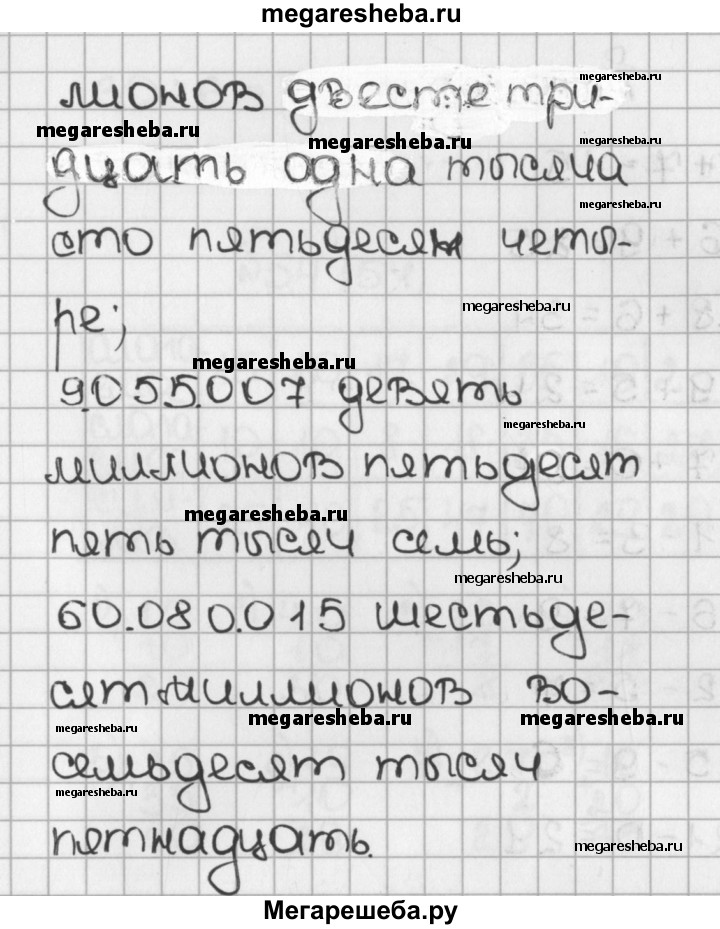 megaresheba.ru
лионов двести три-
megaresheba.ru
megaresheba.ru
megaresheba.ru
дцать одна тысяча
megaresheba.ru
сто пятьдесят четы-
ре;
megaresheba.ru
megaresheba.ru
9.055.007 девять
megaresheba.ru
миллионов пятьдесят
megaresheba.ru
пять тысяч семь;
megaresheba.ru
60.080.015 шестьде-
сят миллионов во-
megaresheba.ru megaresheba.ru megaresheba.ru
семьдесят тысяч
megaresheba.ru
пятнадцать.
megaresheba.ru
Мегарешеба.ру